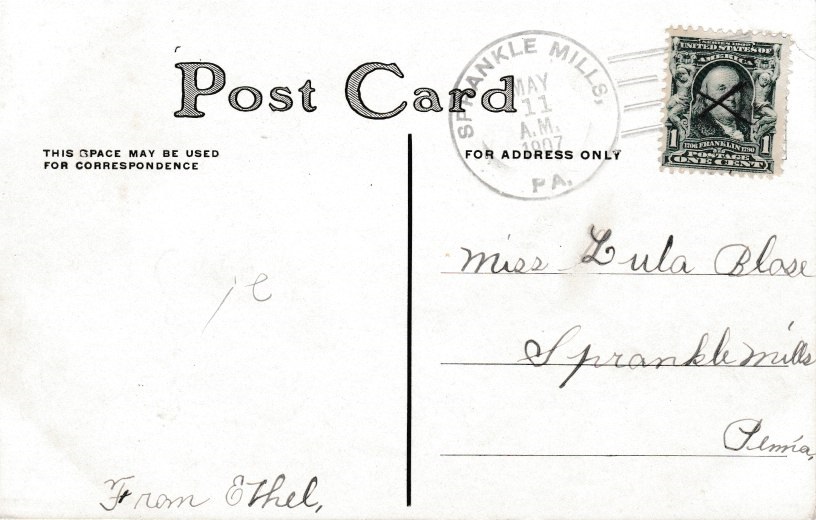 Post Card
THIS SPACE MAY BE USED
FOR CORRESPONDENCE
FOR ADDRESS ONLY
SPRANKLE MILLS,
MAY
11
A.M.
1907
PA.
SERIES 1902
UNITED STATES OF
AMERICA
1706 FRANKLIN 1790
1 1
POSTAGE
ONE CENT
Miss Lula Blose
Sprankle Mills
Penna,
From Ethel,